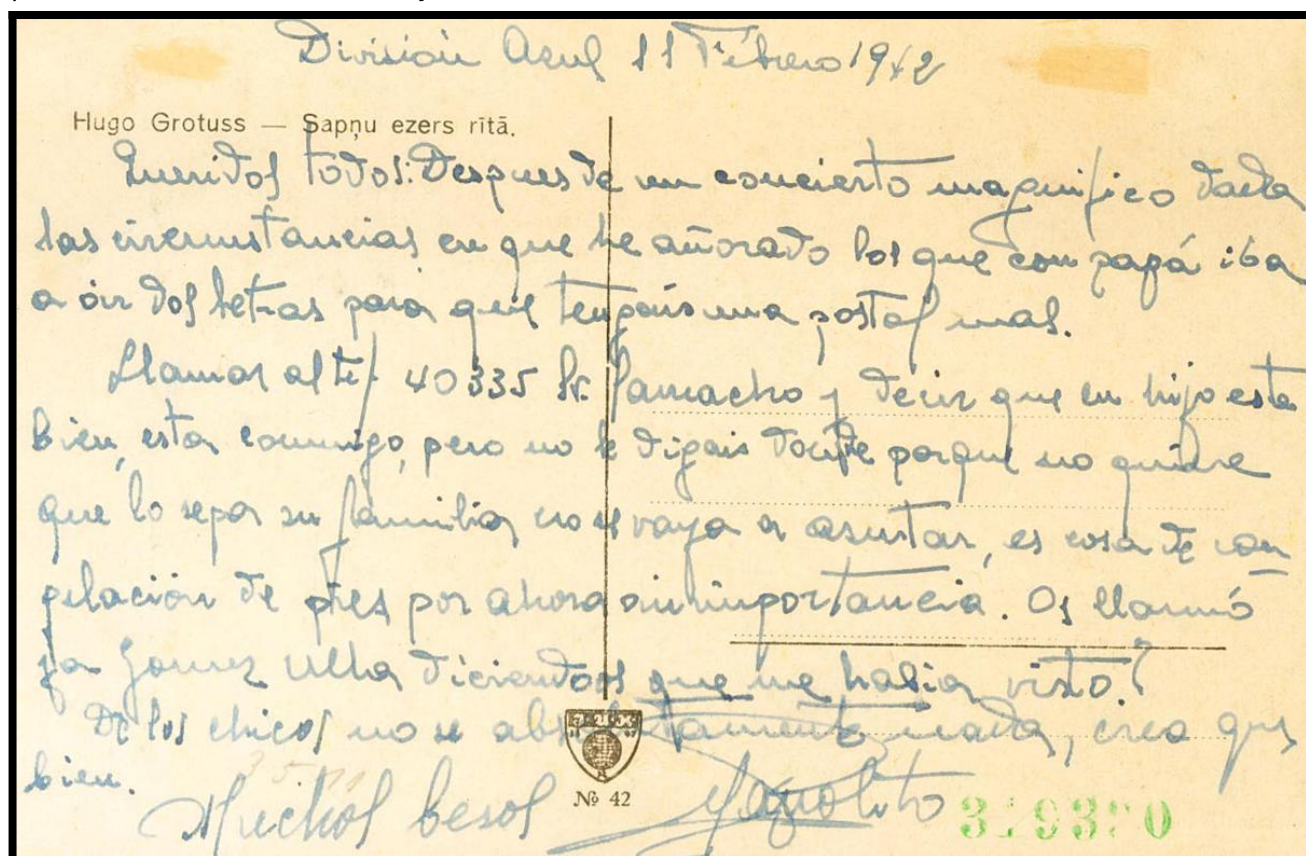 División Azul 11 Febrero 1942
Hugo Grotuss — Sapņu ezers rītā.
Queridos todos: Despues de un concierto magnifico dada
las circunstancias en que he añorado los que con papá iba
a oir dos letras para que tengais una postal mas.
Llamar al telf. 40335 Sr. Camacho y decir que su hijo esta
bien, esta conmigo, pero no le digais donde porque no quiere
que lo sepa su familia no se vaya a asustar, es cosa de con
gelación de pies por ahora sin importancia. Os llamó
ya Gomez Ulla diciendoos que me habia visto?
De los chicos no se absolutamente nada, creo que
bien.
Muchos besos
Nº 42